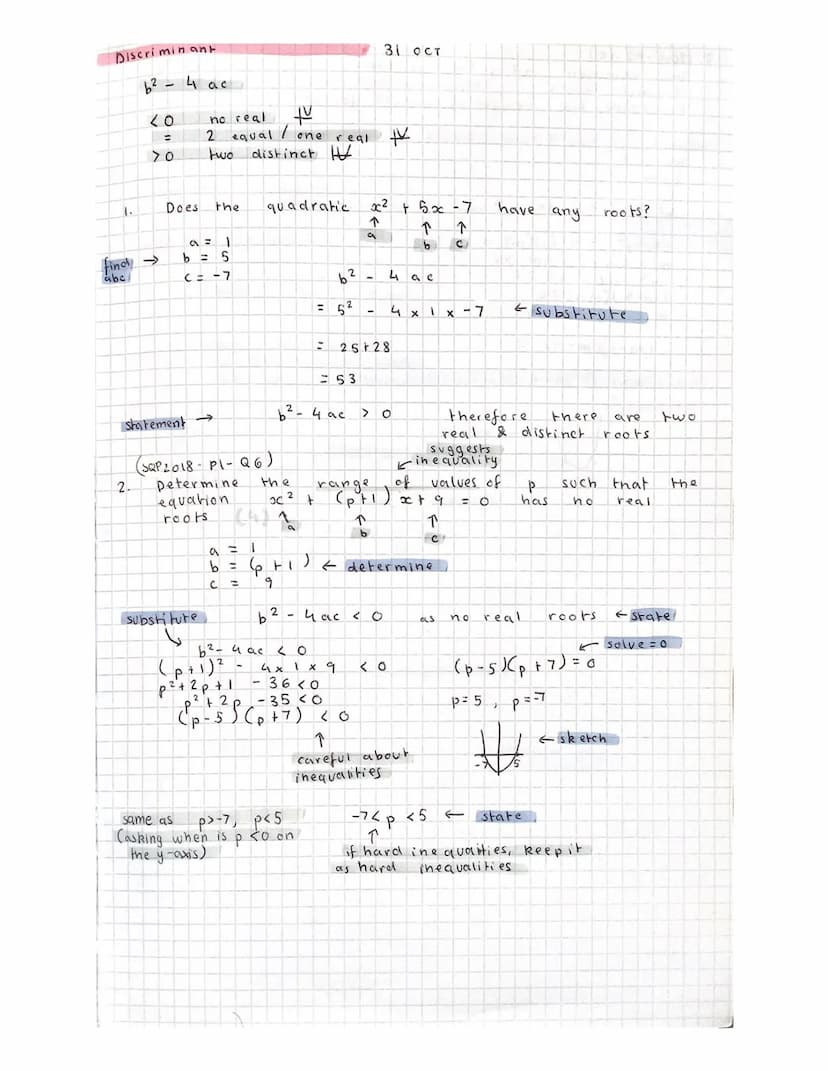 Discriminant 31 OCT
b² - 4ac
<0 no real
= 2 equal / one real
>0 two distinct
1. Does the quadratic x² + 5x - 7 have any roots?
↑ ↑ ↑
a b c
find abc → a = 1
b = 5
c = -7
b² - 4ac
= 5² - 4 x 1 x -7 ← substitute
= 25+28
= 53
statement → b² - 4ac > 0 therefore there are two
real & distinct roots
(SQP2018 - P1 - Q6) suggests
inequality
2. Determine the range of values of p such that the
equation x² + (p+1)x + 9 = 0 has no real
roots (4) ↑ ↑ ↑
a b c
a = 1
b = (p+1) ← determine
c = 9
substitute b² - 4ac < 0 as no real roots ← state
b² - 4ac < 0 ← solve = 0
(p+1)² - 4x1x9 < 0 (p-5)(p+7) = 0
p²+2p+1 - 36<0
p²+2p - 35<0 p=5, p=-7
(p-5)(p+7) < 0
↑ ← sketch
careful about -7 5
inequalities
same as p>-7, p<5 -7<p<5 ← state
(asking when is p<0 on ↑
the y-axis) if hard inequalities, keep it
as hard inequalities